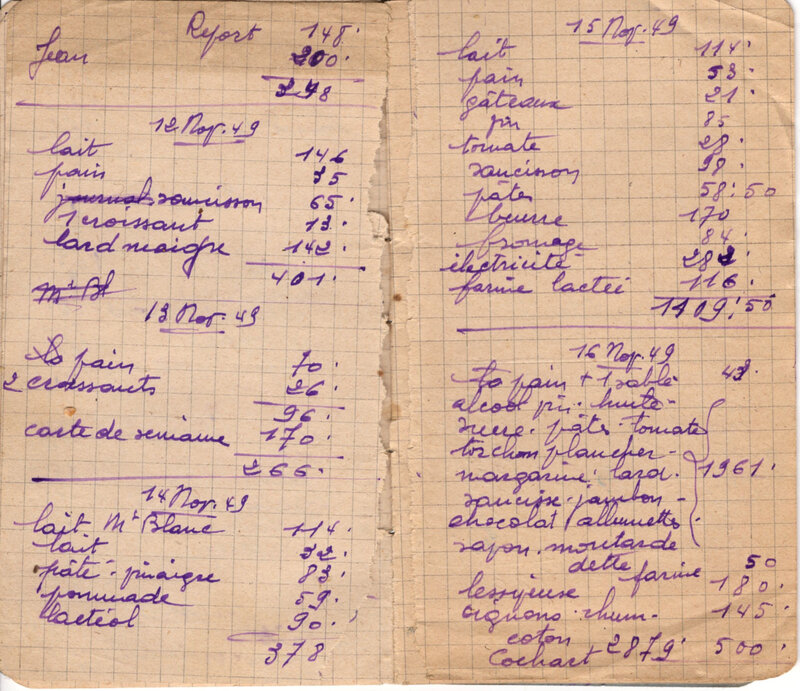 Report 148.
Jean 200.
348
12 Nov. 49
lait 146
pain 35
journal saucisson 65.
1 croissant 13.
lard maigre 142.
401.
Mr Bl
13 Nov. 49
pain 70.
2 croissants 26.
96.
carte de semaine 170.
266.
14 Nov. 49
lait Mr Blanc 114.
lait 32.
pâté. vinaigre 83.
pommade 59.
lactéol 90.
378
15 Nov. 49
lait 114.
pain 53.
gâteaux 21.
vin 85
tomate 28.
saucisson 98.
pâtes 58.50
beurre 170
fromage 84.
électricité 282
farine lactée 116
1109.50
16 Nov. 49
pain + 1 sablé 43.
alcool vin. huile.
sucre. pâtes. tomate
torchon plancher.
margarine. lard. 1961.
saucisse. jambon.
chocolat allumettes.
savon. moutarde
dette farine 50
lessiveuse 180.
oignons. rhum. 145.
coton
Cochart 2879. 500.